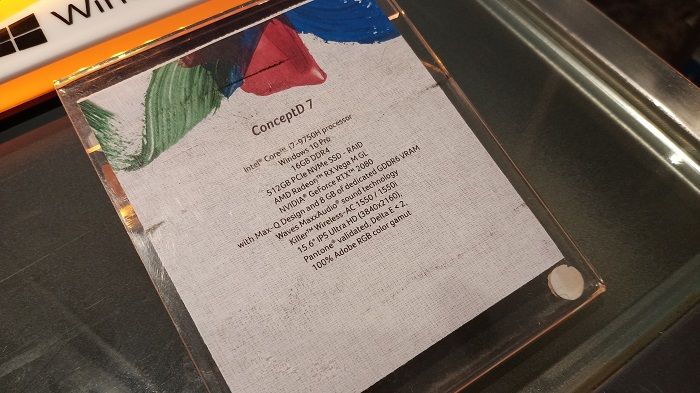 Win
ConceptD 7
Intel® Core™ i7-9750H processor
Windows 10 Pro
16GB DDR4
512GB PCIe NVMe SSD - RAID
AMD Radeon™ RX Vega M GL
NVIDIA® GeForce RTX™ 2080
with Max-Q Design and 8 GB of dedicated GDDR6 VRAM
Waves MaxxAudio® sound technology
Killer™ Wireless-AC 1550 / 1550i
15.6" IPS Ultra HD (3840x2160)
Pantone® validated, Delta E < 2
100% Adobe RGB color gamut